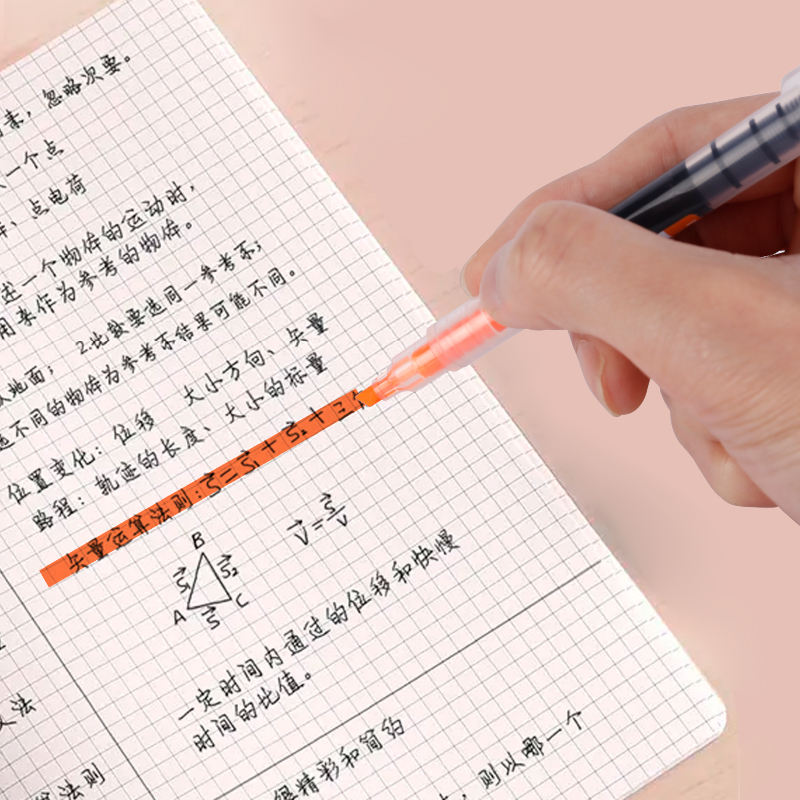 素，忽略次要。
一个点
、点电荷
述一个物体的运动时，
用来作为参考的物体。
地面； 2.比较要选同一参考系；
选不同的物体为参考系结果可能不同。
位置变化：位移 大小方向、矢量
路程：轨迹的长度、大小的标量
矢量运算法则：S⃗=S⃗₁+S⃗₂+三
B
S⃗₁ S⃗₂
A C
S⃗
V⃗=S⃗/V
一定时间内通过的位移和快慢
时间的比值。
法
很精彩和简约
算法则
，则以哪一个